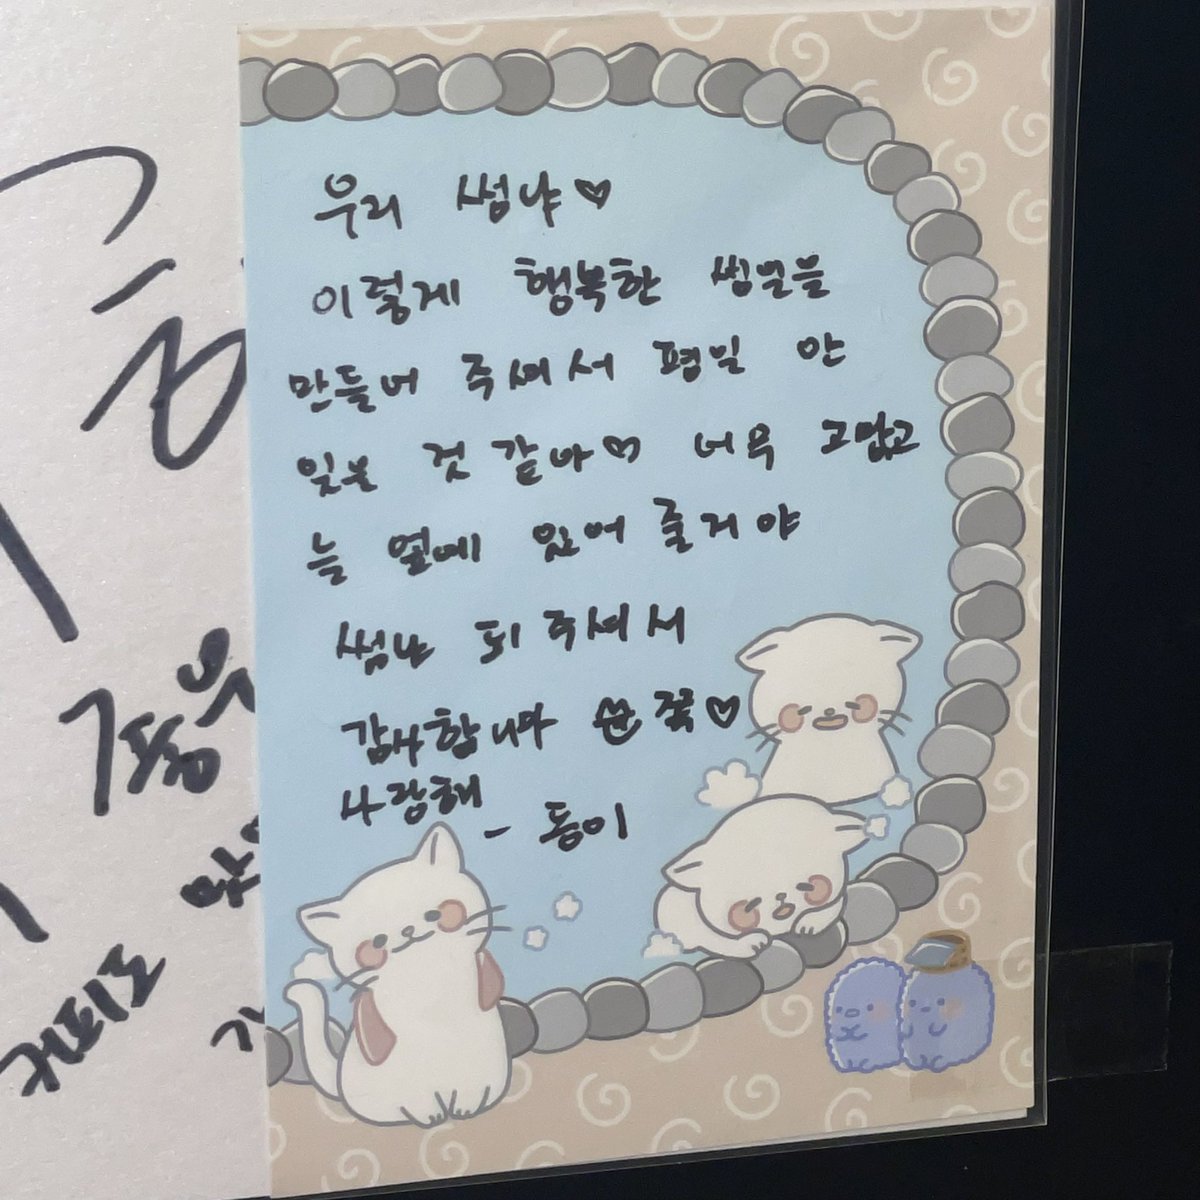 우리 썸냐♡
이렇게 행복한 썸일을
만들어 주셔서 평일 안
잊을 것 같아♡ 너무 고맙고
늘 옆에 있어 줄거야
썸냐 되 주셔서
감사합니다 꾹♡
사랑해
- 동이
커피도